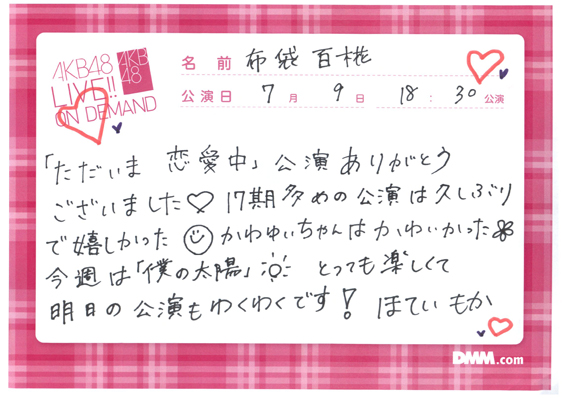 AKB48
LIVE!!
ON DEMAND
AKB
48
名前 布袋百椛
公演日 7月 9日 18:30公演
「ただいま 恋愛中」公演ありがとう
ございました♡ 17期多めの公演は久しぶり
で嬉しかった☺かわゆいちゃんはかわいかった
今週は「僕の太陽」☼ とっても楽しくて
明日の公演もわくわくです! ほてい もか
DMM.com